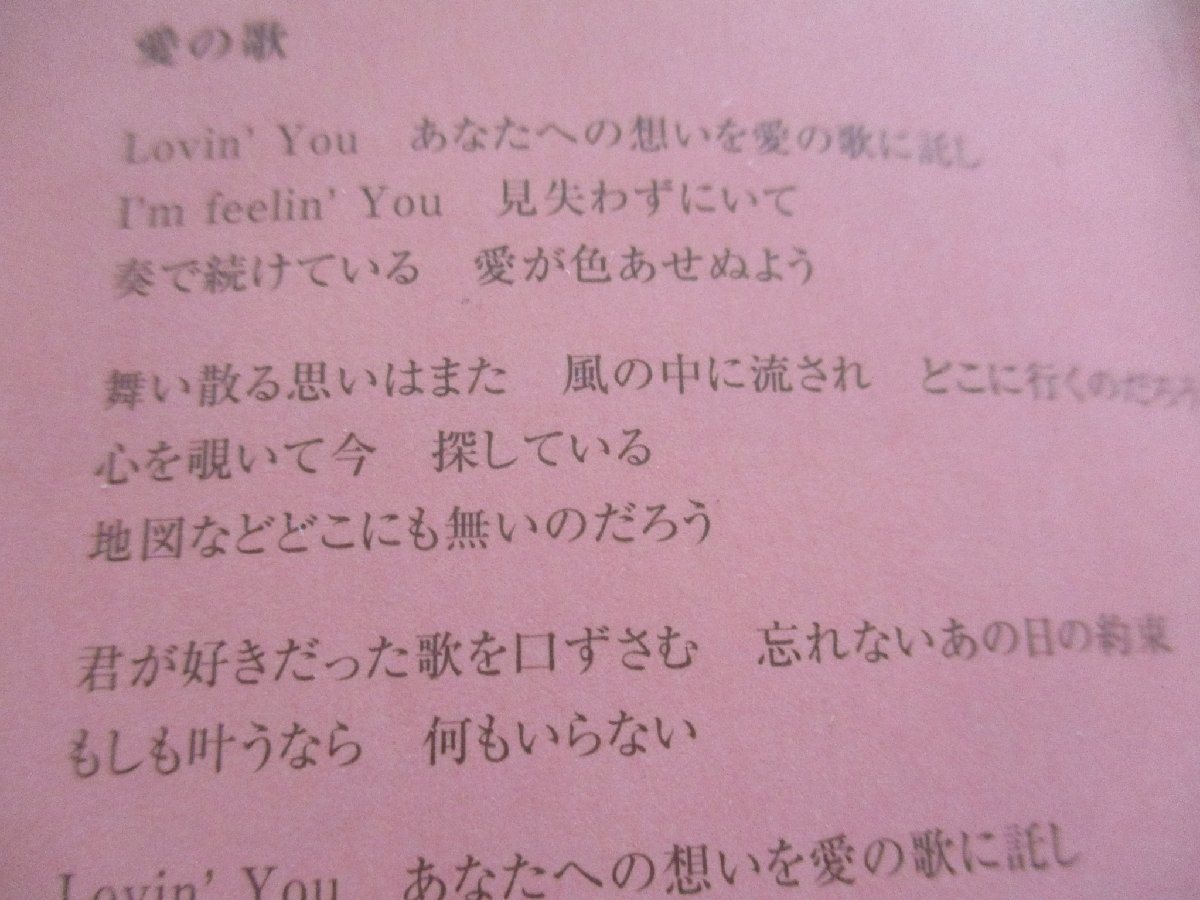 愛の歌
Lovin' You　あなたへの想いを愛の歌に託し
I'm feelin' You　見失わずにいて
奏で続けている　愛が色あせぬよう
舞い散る思いはまた　風の中に流され　どこに行くのだろう
心を覗いて今　探している
地図などどこにも無いのだろう
君が好きだった歌を口ずさむ　忘れないあの日の約束
もしも叶うなら　何もいらない
Lovin' You　あなたへの想いを愛の歌に託し